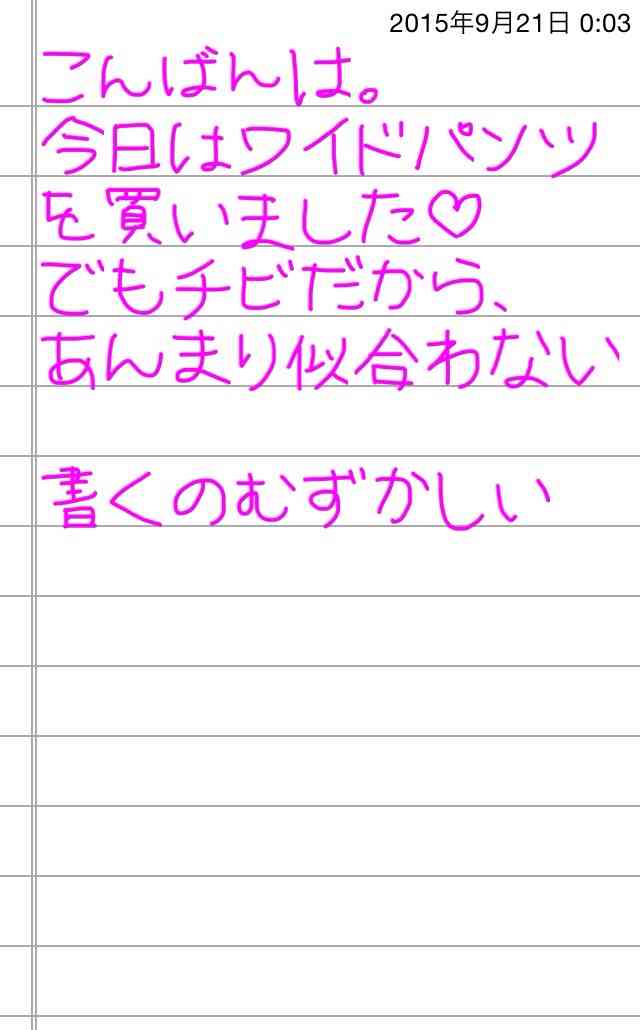 2015年9月21日 0:03
こんばんは。
今日はワイドパンツ
を買いました♡
でもチビだから、
あんまり似合わない
書くのむずかしい